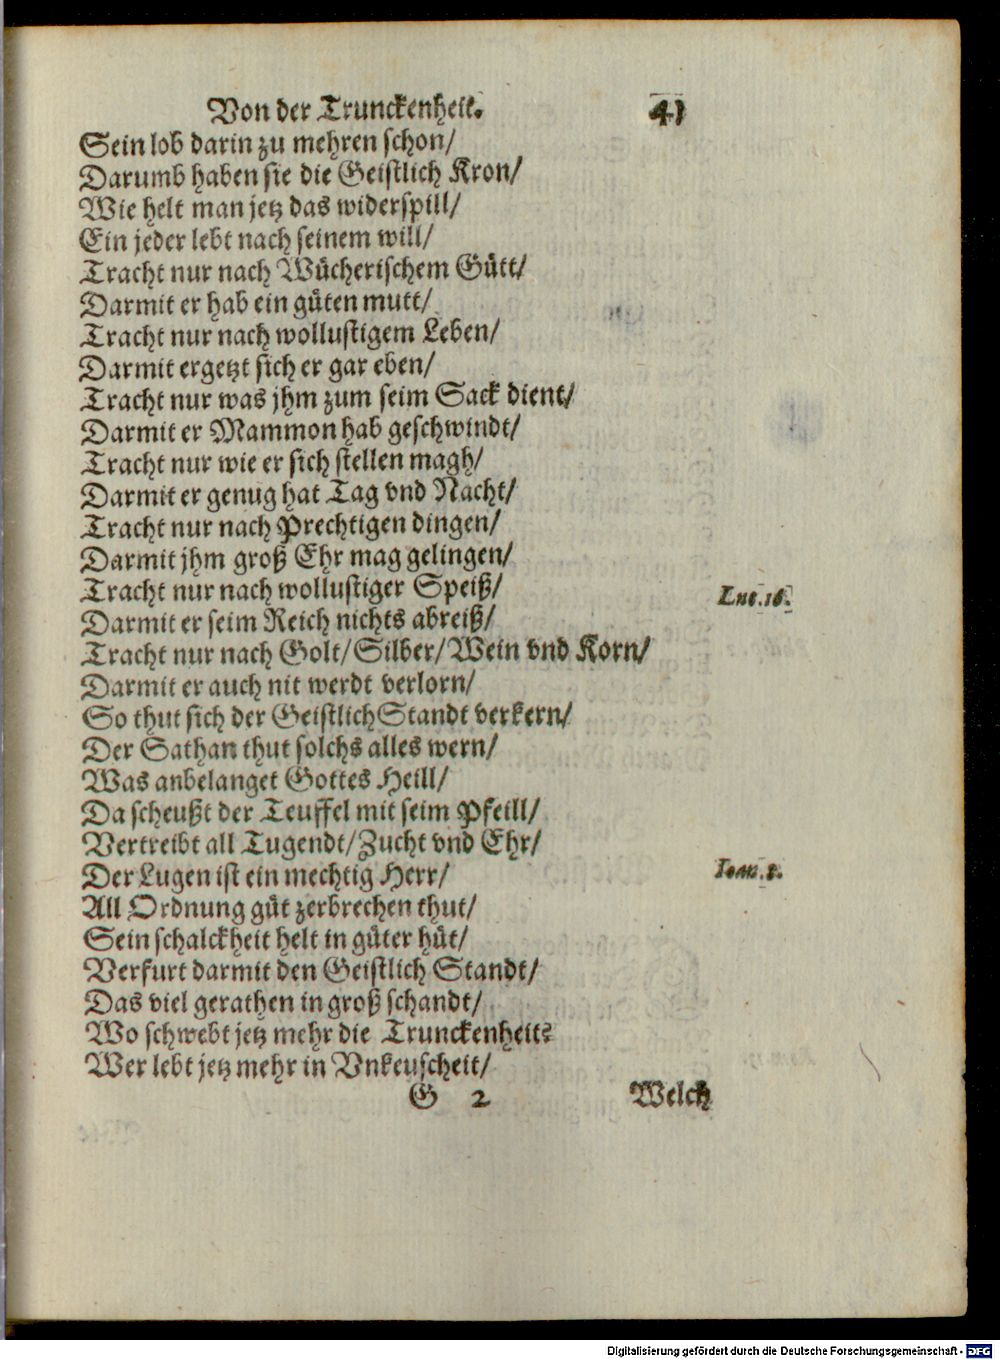 Von der Trunckenheit. 41
Sein lob darin zu mehren schon/
Darumb haben sie die Geistlich Kron/
Wie helt man jetz das widerspill/
Ein jeder lebt nach seinem will/
Tracht nur nach Wücherischem Gütt/
Darmit er hab ein güten mutt/
Tracht nur nach wollustigem Leben/
Darmit ergetzt sich er gar eben/
Tracht nur was jhm zum seim Sack dient/
Darmit er Mammon hab geschwindt/
Tracht nur wie er sich stellen magh/
Darmit er genug hat Tag vnd Nacht/
Tracht nur nach Prechtigen dingen/
Darmit jhm groß Ehr mag gelingen/
Tracht nur nach wollustiger Speiß/
Luc. 16.
Darmit er seim Reich nichts abreiß/
Tracht nur nach Golt/Silber/Wein vnd Korn/
Darmit er auch nit werdt verlorn/
So thut sich der Geistlich Standt verkern/
Der Sathan thut solchs alles wern/
Was anbelanget Gottes Heill/
Da scheußt der Teuffel mit seim Pfeill/
Vertreibt all Tugendt/Zucht vnd Ehr/
Der Lugen ist ein mechtig Herr/
Ioan. 8.
All Ordnung güt zerbrechen thut/
Sein schalckheit helt in güter hüt/
Verfurt darmit den Geistlich Standt/
Das viel gerathen in groß schandt/
Wo schwebt jetz mehr die Trunckenheit?
Wer lebt jetz mehr in Vnkeuscheit/
G 2 Welch
Digitalisierung gefördert durch die Deutsche Forschungsgemeinschaft - DFG